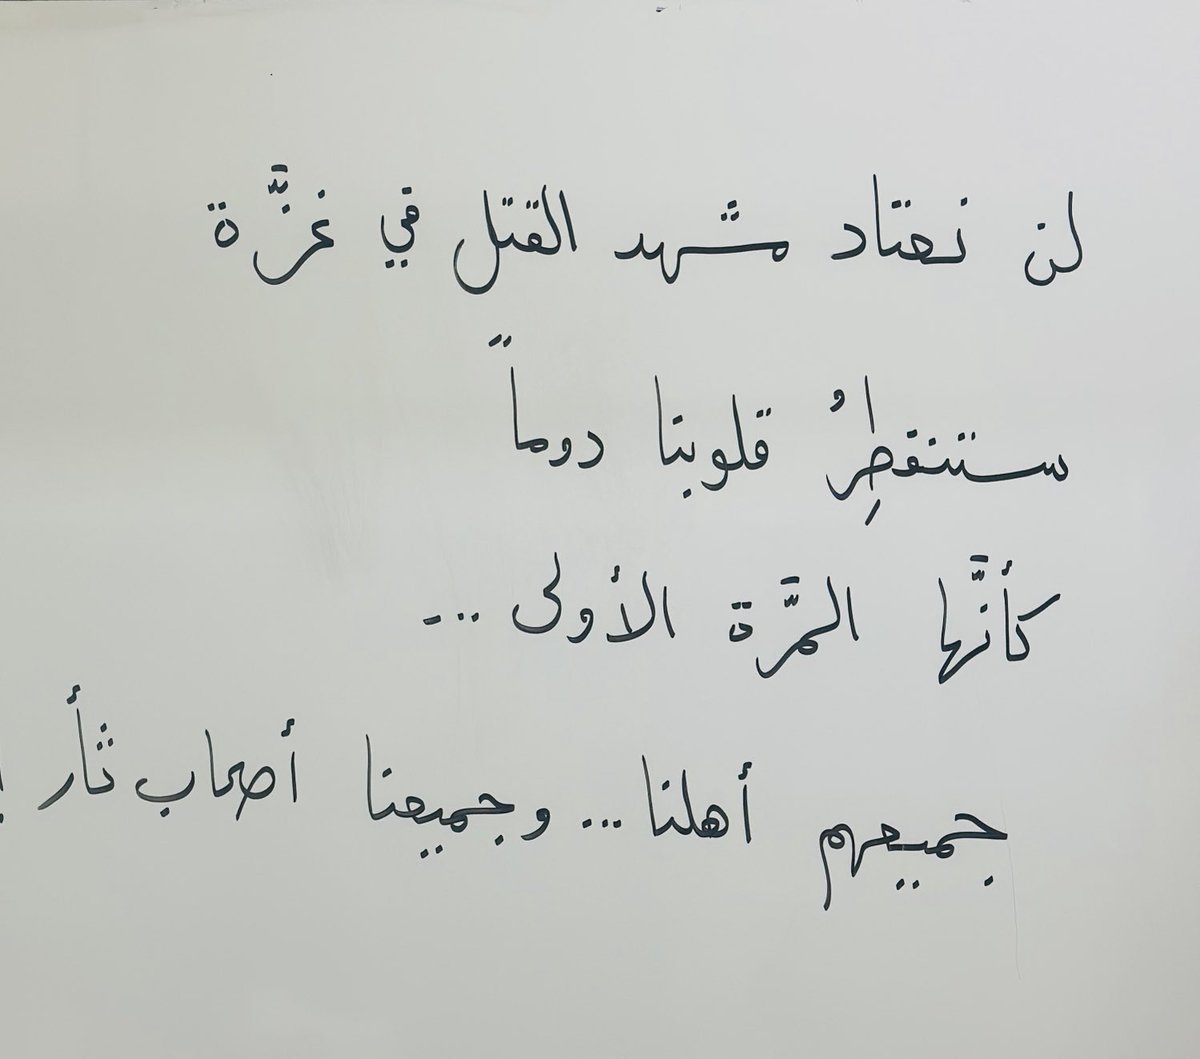 لن نعتاد مشهد القتل في غزَّة
ستنفطِرُ قلوبنا دوماً
كأنَّها المرَّة الأولى ...
جميعهم أهلنا ... وجميعنا أصحاب ثأر